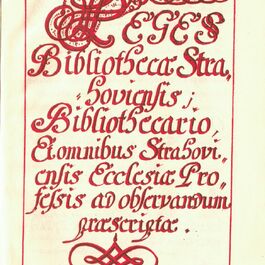 LEGES
Bibliothecæ Stra,
,,hoviensis;
Bibliothecario,
Et omnibus Strahovi,,
ensis Ecclesiæ Pro,,
fessis ad observandum
præscriptæ.